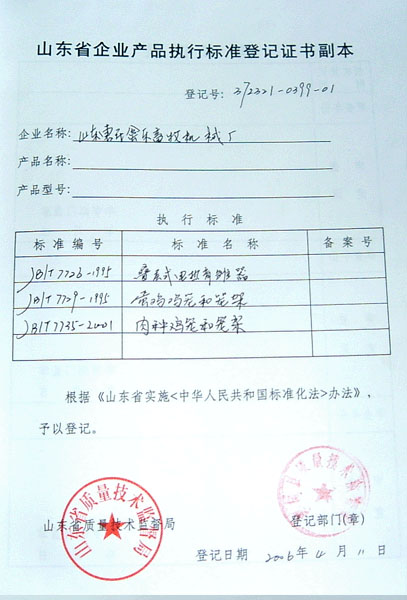 山东省企业产品执行标准登记证书副本
登记号: 372321-0399-01
企业名称: 山东惠民金乐畜牧机械厂
产品名称:
产品型号:
执行标准
标准编号 标准名称 备案号
JB/T7726-1995 叠层式电热育雏器
JB/T7729-1995 蛋鸡鸡笼和笼架
JB/T7735-2001 肉种鸡笼和笼架
根据《山东省实施<中华人民共和国标准化法>办法》,
予以登记。
山东省质量技术监督局
山东省质量技术监督局
登记部门(章)
登记日期 2006年4月11日